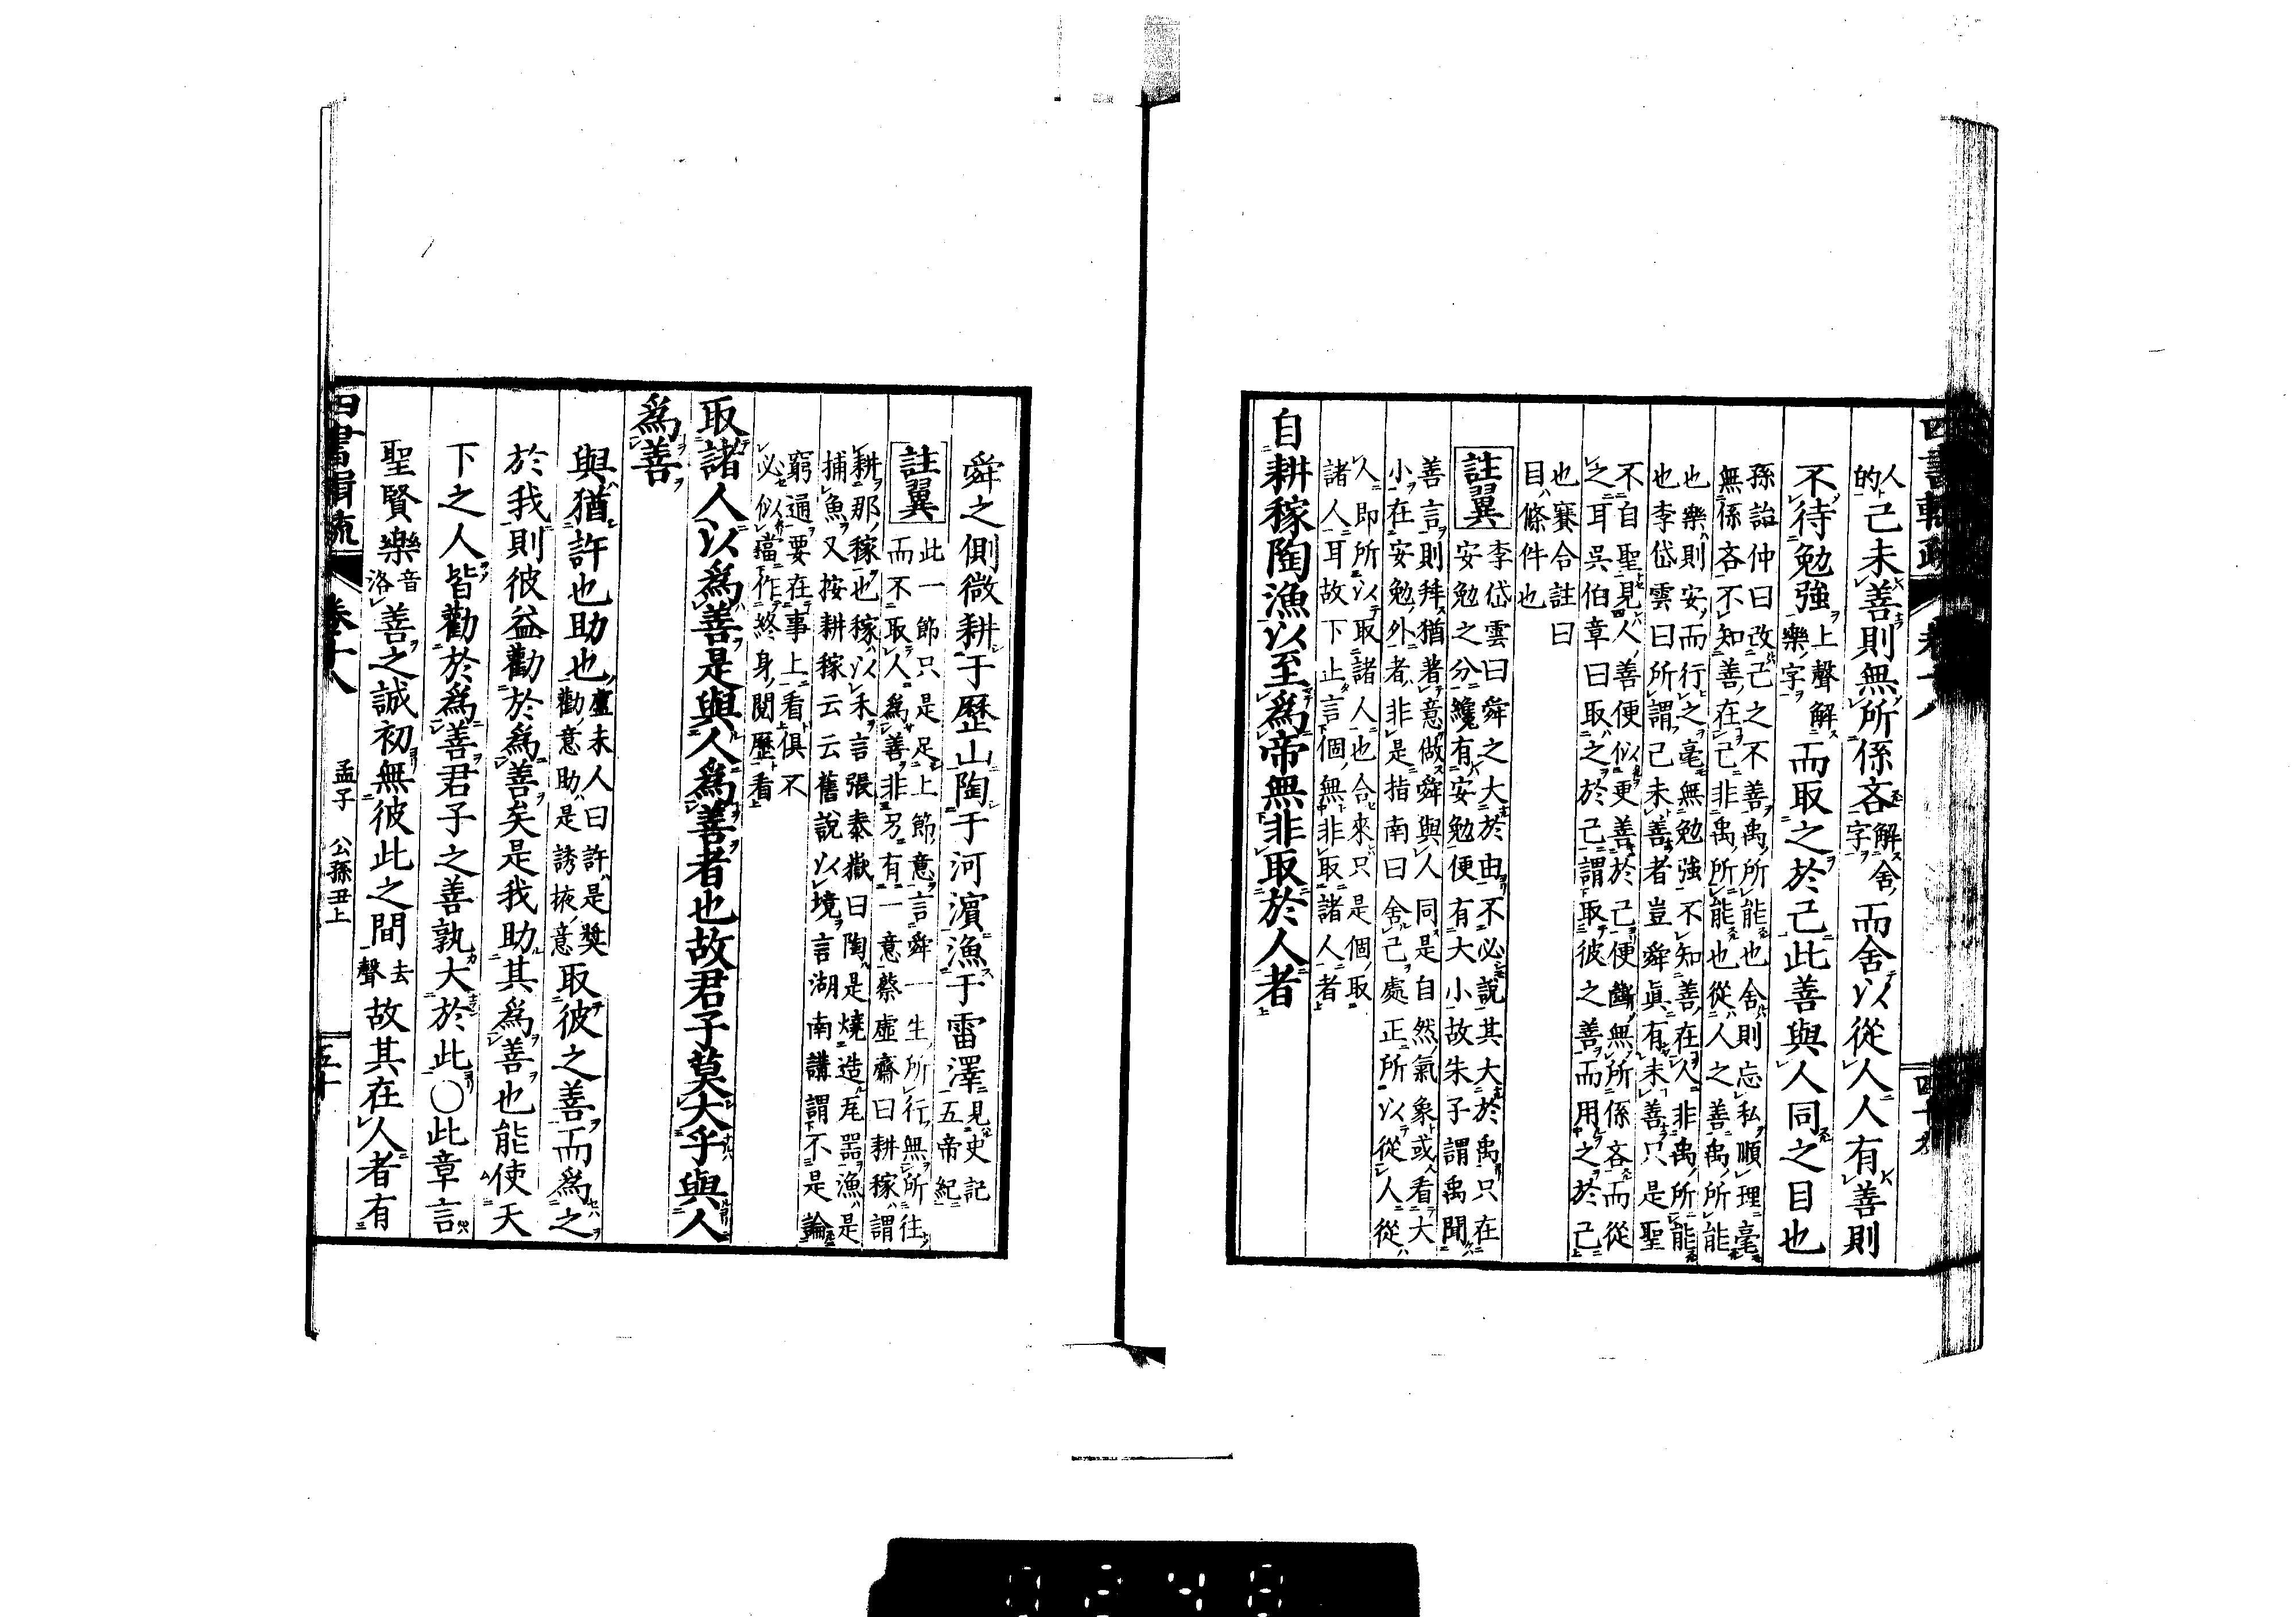 四書輯疏 卷十八 四十九
人的己未善則無所係吝解舍字而舍以從人人有善則
不待勉強上聲解樂字而取之於己此善與人同之目也
孫詒仲曰改己之不善禹所能也舍則忘私順理毫
無係吝不知善在己非禹所能也從人之善禹所能
也樂則安而行之毫無勉強不知善在人非禹所能
也李岱雲曰所謂己未善者豈舜眞有未善只是聖
不自聖見人善便似更善於己便斷無所係吝而從
之耳吳伯章曰取之於己謂取彼之善而用之於己
也賽合註曰
目條件也
註翼
李岱雲曰舜之大於由不必說其大於禹只在
安勉之分纔有安勉便有大小故朱子謂禹聞
善言則拜猶著意做舜與人同是自然氣象或看大
小在安勉外者非是指南曰舍己處正所以從人從
人即所以取諸人也合來只是個取
諸人耳故下止言個無非取諸人者
自耕稼陶漁以至爲帝無非取於人者
舜之側微耕于歷山陶于河濱漁于雷澤見史記五帝紀
註翼
此一節只是足上節意言舜一生所行無所往
而不取人爲善非另有一意蔡虛齋曰耕稼謂
耕那稼也稼以禾言張泰嶽曰陶是燒造瓦器漁是
捕魚又按耕稼云云舊說以境言湖南講謂不是論
窮通要在事上看俱不
必似當作終身閱歷看
取諸人以爲善是與人爲善者也故君子莫大乎與人
爲善
與猶許也助也盧未人曰許是獎勸意助是誘掖意取彼之善而爲之
於我則彼益勸於爲善矣是我助其爲善也能使天
下之人皆勸於爲善君子之善孰大於此○此章言
聖賢樂音洛善之誠初無彼此之間去聲故其在人者有
四書輯疏 卷十八 孟子 公孫丑上 五十